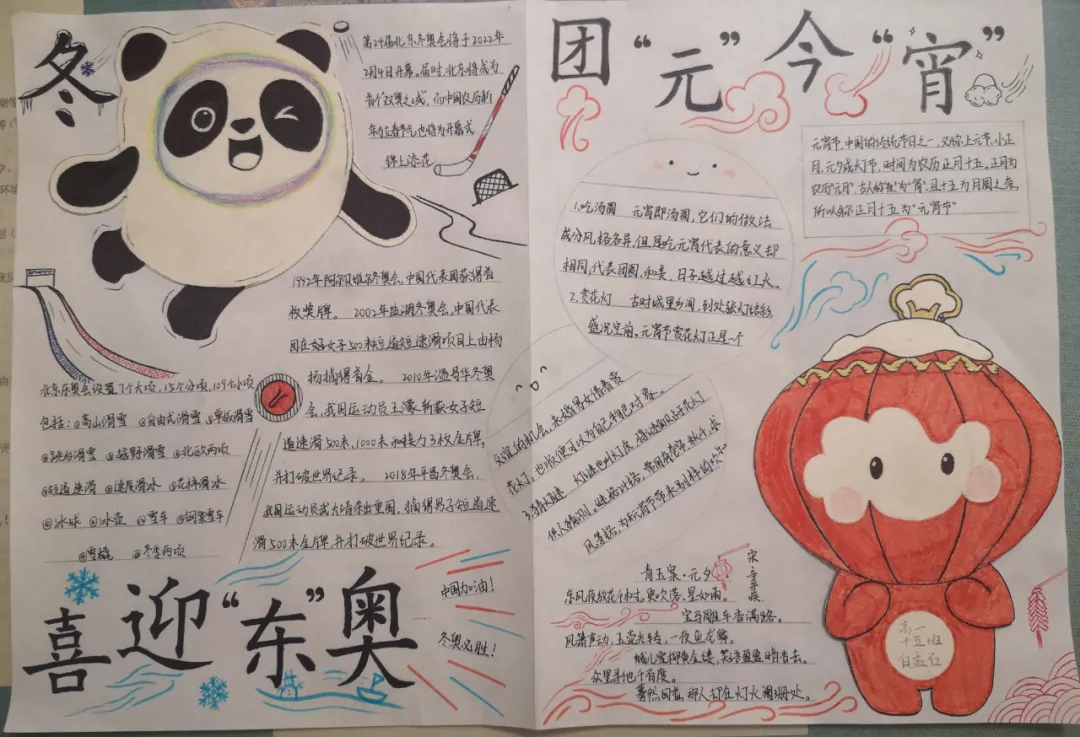 冬
第24届北京冬奥会将于2022年
2月4日开幕。届时,北京将成为
首个"双奥之城",而中国农历新
年、立春节气也将为开幕式
锦上添花
1992年阿尔贝维尔冬奥会,中国代表团获得首
枚奖牌。 2002年盐湖冬奥会,中国代表
团在女子500米短道速滑项目上由杨
扬摘得首金。 2010年温哥华冬奥
会,我国运动员王濛斩获女子短
道速滑500米、1000米和接力3枚金牌,
并打破世界记录。 2018年平昌冬奥会,
我国运动员武大靖杀出重围,摘得男子短道速
滑500米金牌,并打破世界纪录。
北京冬奥会设置7个大项,15个分项,109个小项
包括:高山滑雪 自由式滑雪 单板滑雪
跳台滑雪 越野滑雪 北欧两项
短道速滑 速度滑冰 花样滑冰
冰球 冰壶 雪车 钢架雪车
雪橇 冬季两项
中国加油!
冬奥必胜!
喜迎"东"奥
团"元"今"宵"
元宵节,中国的传统节日之一,又称上元节、小正
月、元夕或灯节,时间为农历正月十五。正月为
农历"元月",古人称"夜"为"宵",且十五为月圆之夜,
所以称正月十五为"元宵节"
1.吃汤圆 元宵即汤圆,它们的做法
成分风格各异,但是吃元宵代表的意义却
相同,代表团圆,和美,日子越过越红火。
2.赏花灯 古时城里乡间,到处张灯结彩
盛况空前。元宵节赏花灯正是一个
交谊的机会,未婚男女借着赏
花灯,也顺便可以为自己物色对象。
3.猜灯谜
供人猜测。
青玉案·元夕
宋·辛弃疾
东风夜放花千树,更吹落,星如雨。
宝马雕车香满路。
凤箫声动,玉壶光转,一夜鱼龙舞。
蛾儿雪柳黄金缕,笑语盈盈暗香去。
众里寻他千百度。
蓦然回首,那人却在灯火阑珊处。
高一
十五班